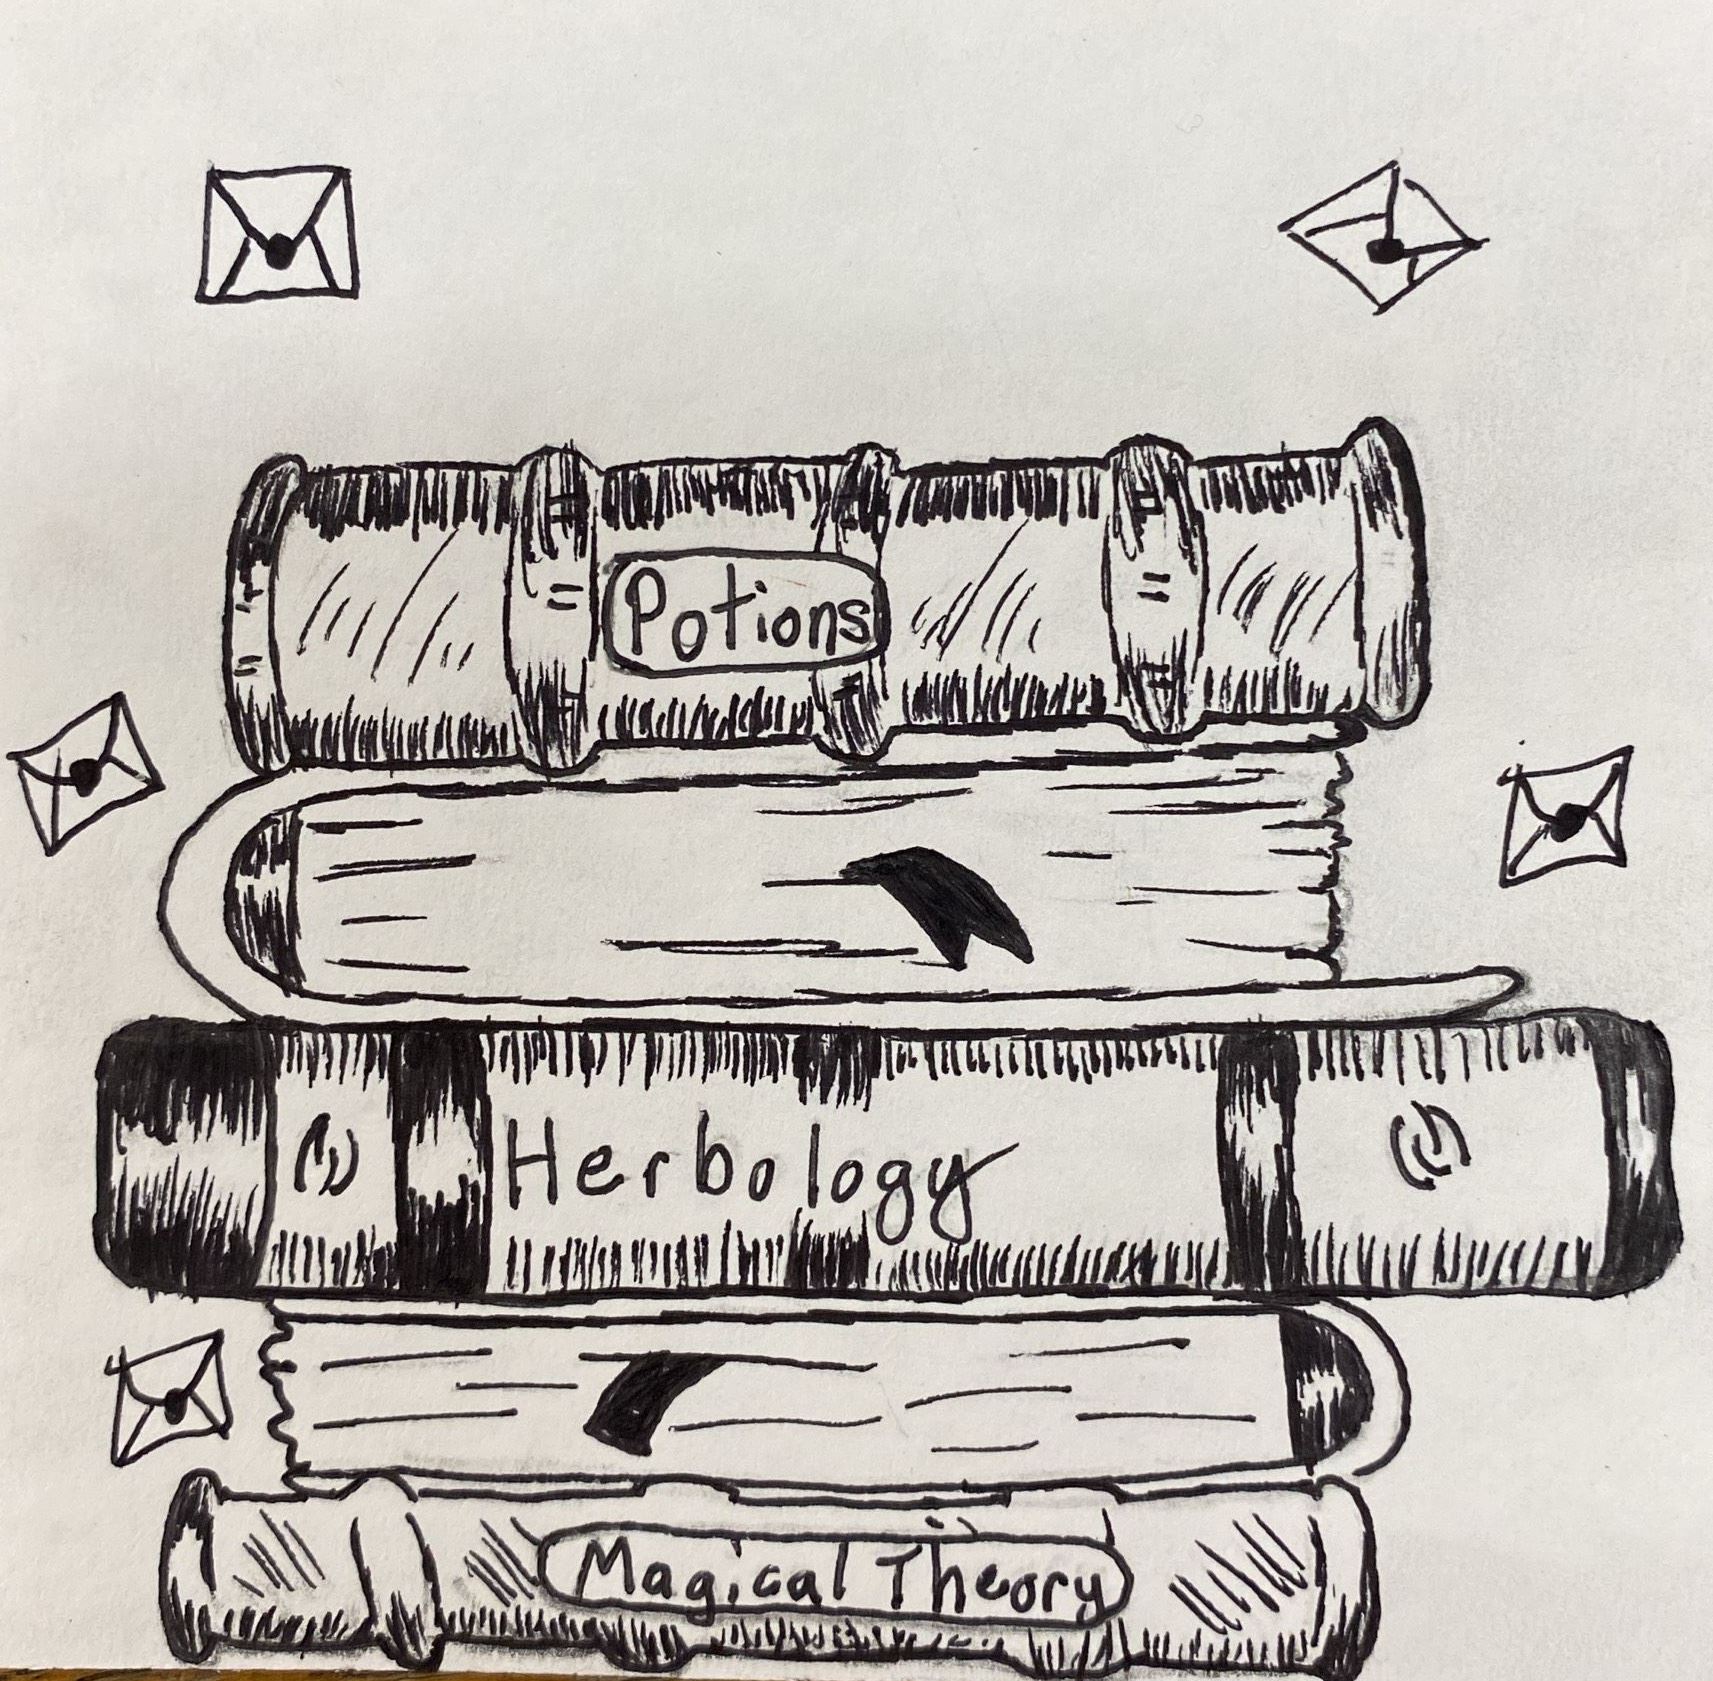 Potions
Herbology
Magical Theory